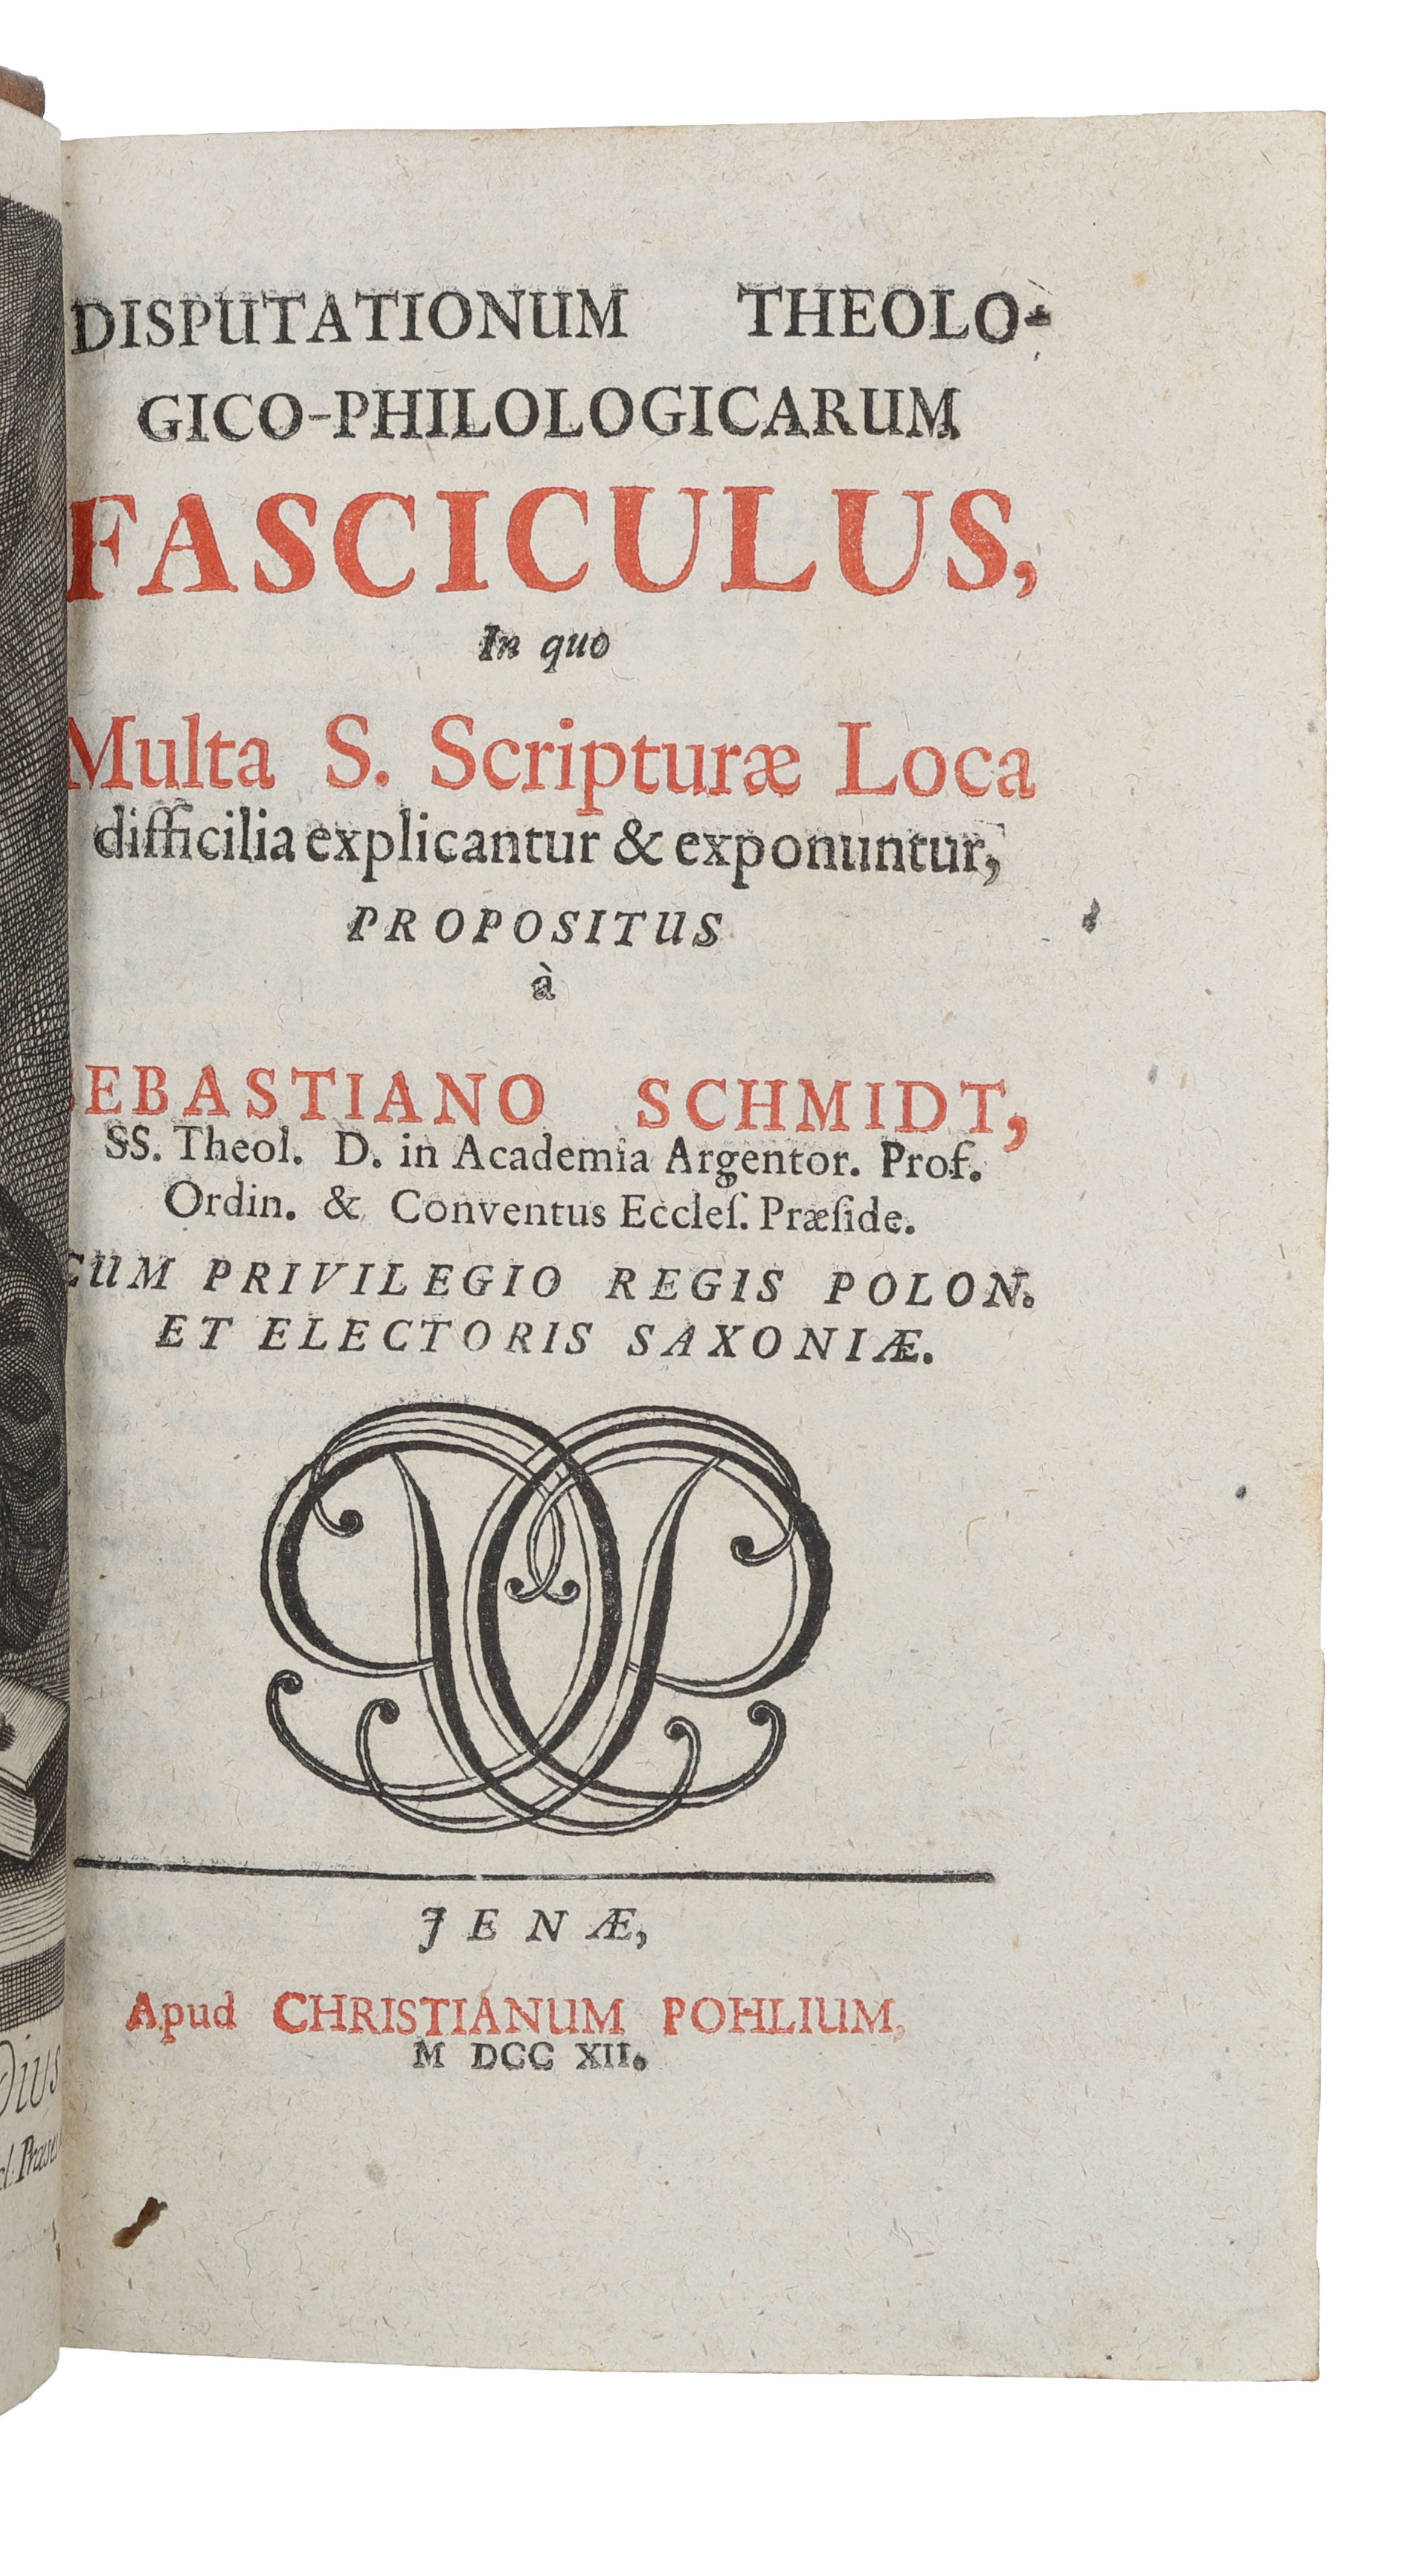 DISPUTATIONUM THEOLO-
GICO-PHILOLOGICARUM
FASCICULUS,
In quo
Multa S. Scripturæ Loca
difficilia explicantur & exponuntur,
PROPOSITUS
à
SEBASTIANO SCHMIDT,
SS. Theol. D. in Academia Argentor. Prof.
Ordin. & Conventus Eccleſ. Præſide.
CUM PRIVILEGIO REGIS POLON.
ET ELECTORIS SAXONIÆ.
JENÆ,
Apud CHRISTIANUM POHLIUM,
M DCC XII.